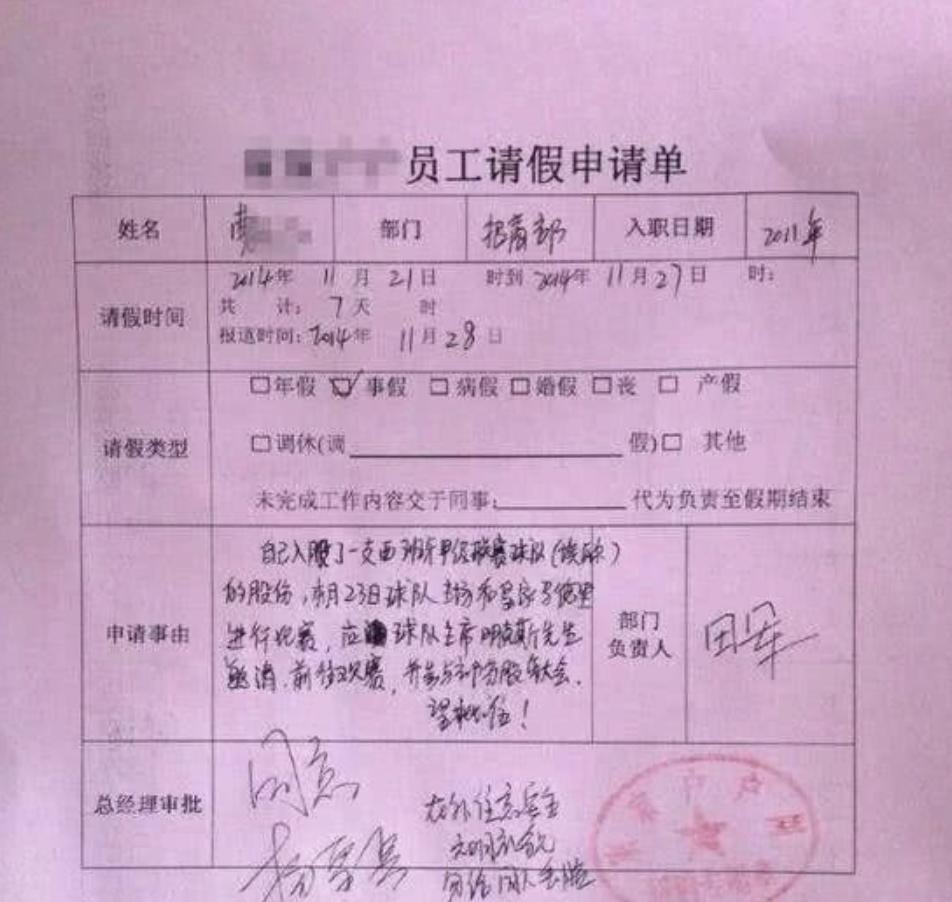 员工请假申请单
姓名 部门 招商部 入职日期 2011年
请假时间 2014年 11月 21日 时到 2014年 11月27日 时;
共 计: 7天 时
报道时间: 2014年 11月28日
请假类型 □年假 ☑事假 □病假 □婚假 □丧 □ 产假
□调休(调 假)□ 其他
未完成工作内容交于同事: 代为负责至假期结束
申请事由 自己入股了一支西班牙甲级联赛球队(埃瓦尔)
的股份,本月23日球队主场和皇家马德里
进行比赛,应 球队主席 先生
邀请.前往观赛,并参与 股东大会.
望批准!
部门
负责人 田军
总经理审批 同意
在外注意安全
文明礼貌
勿给国人丢脸